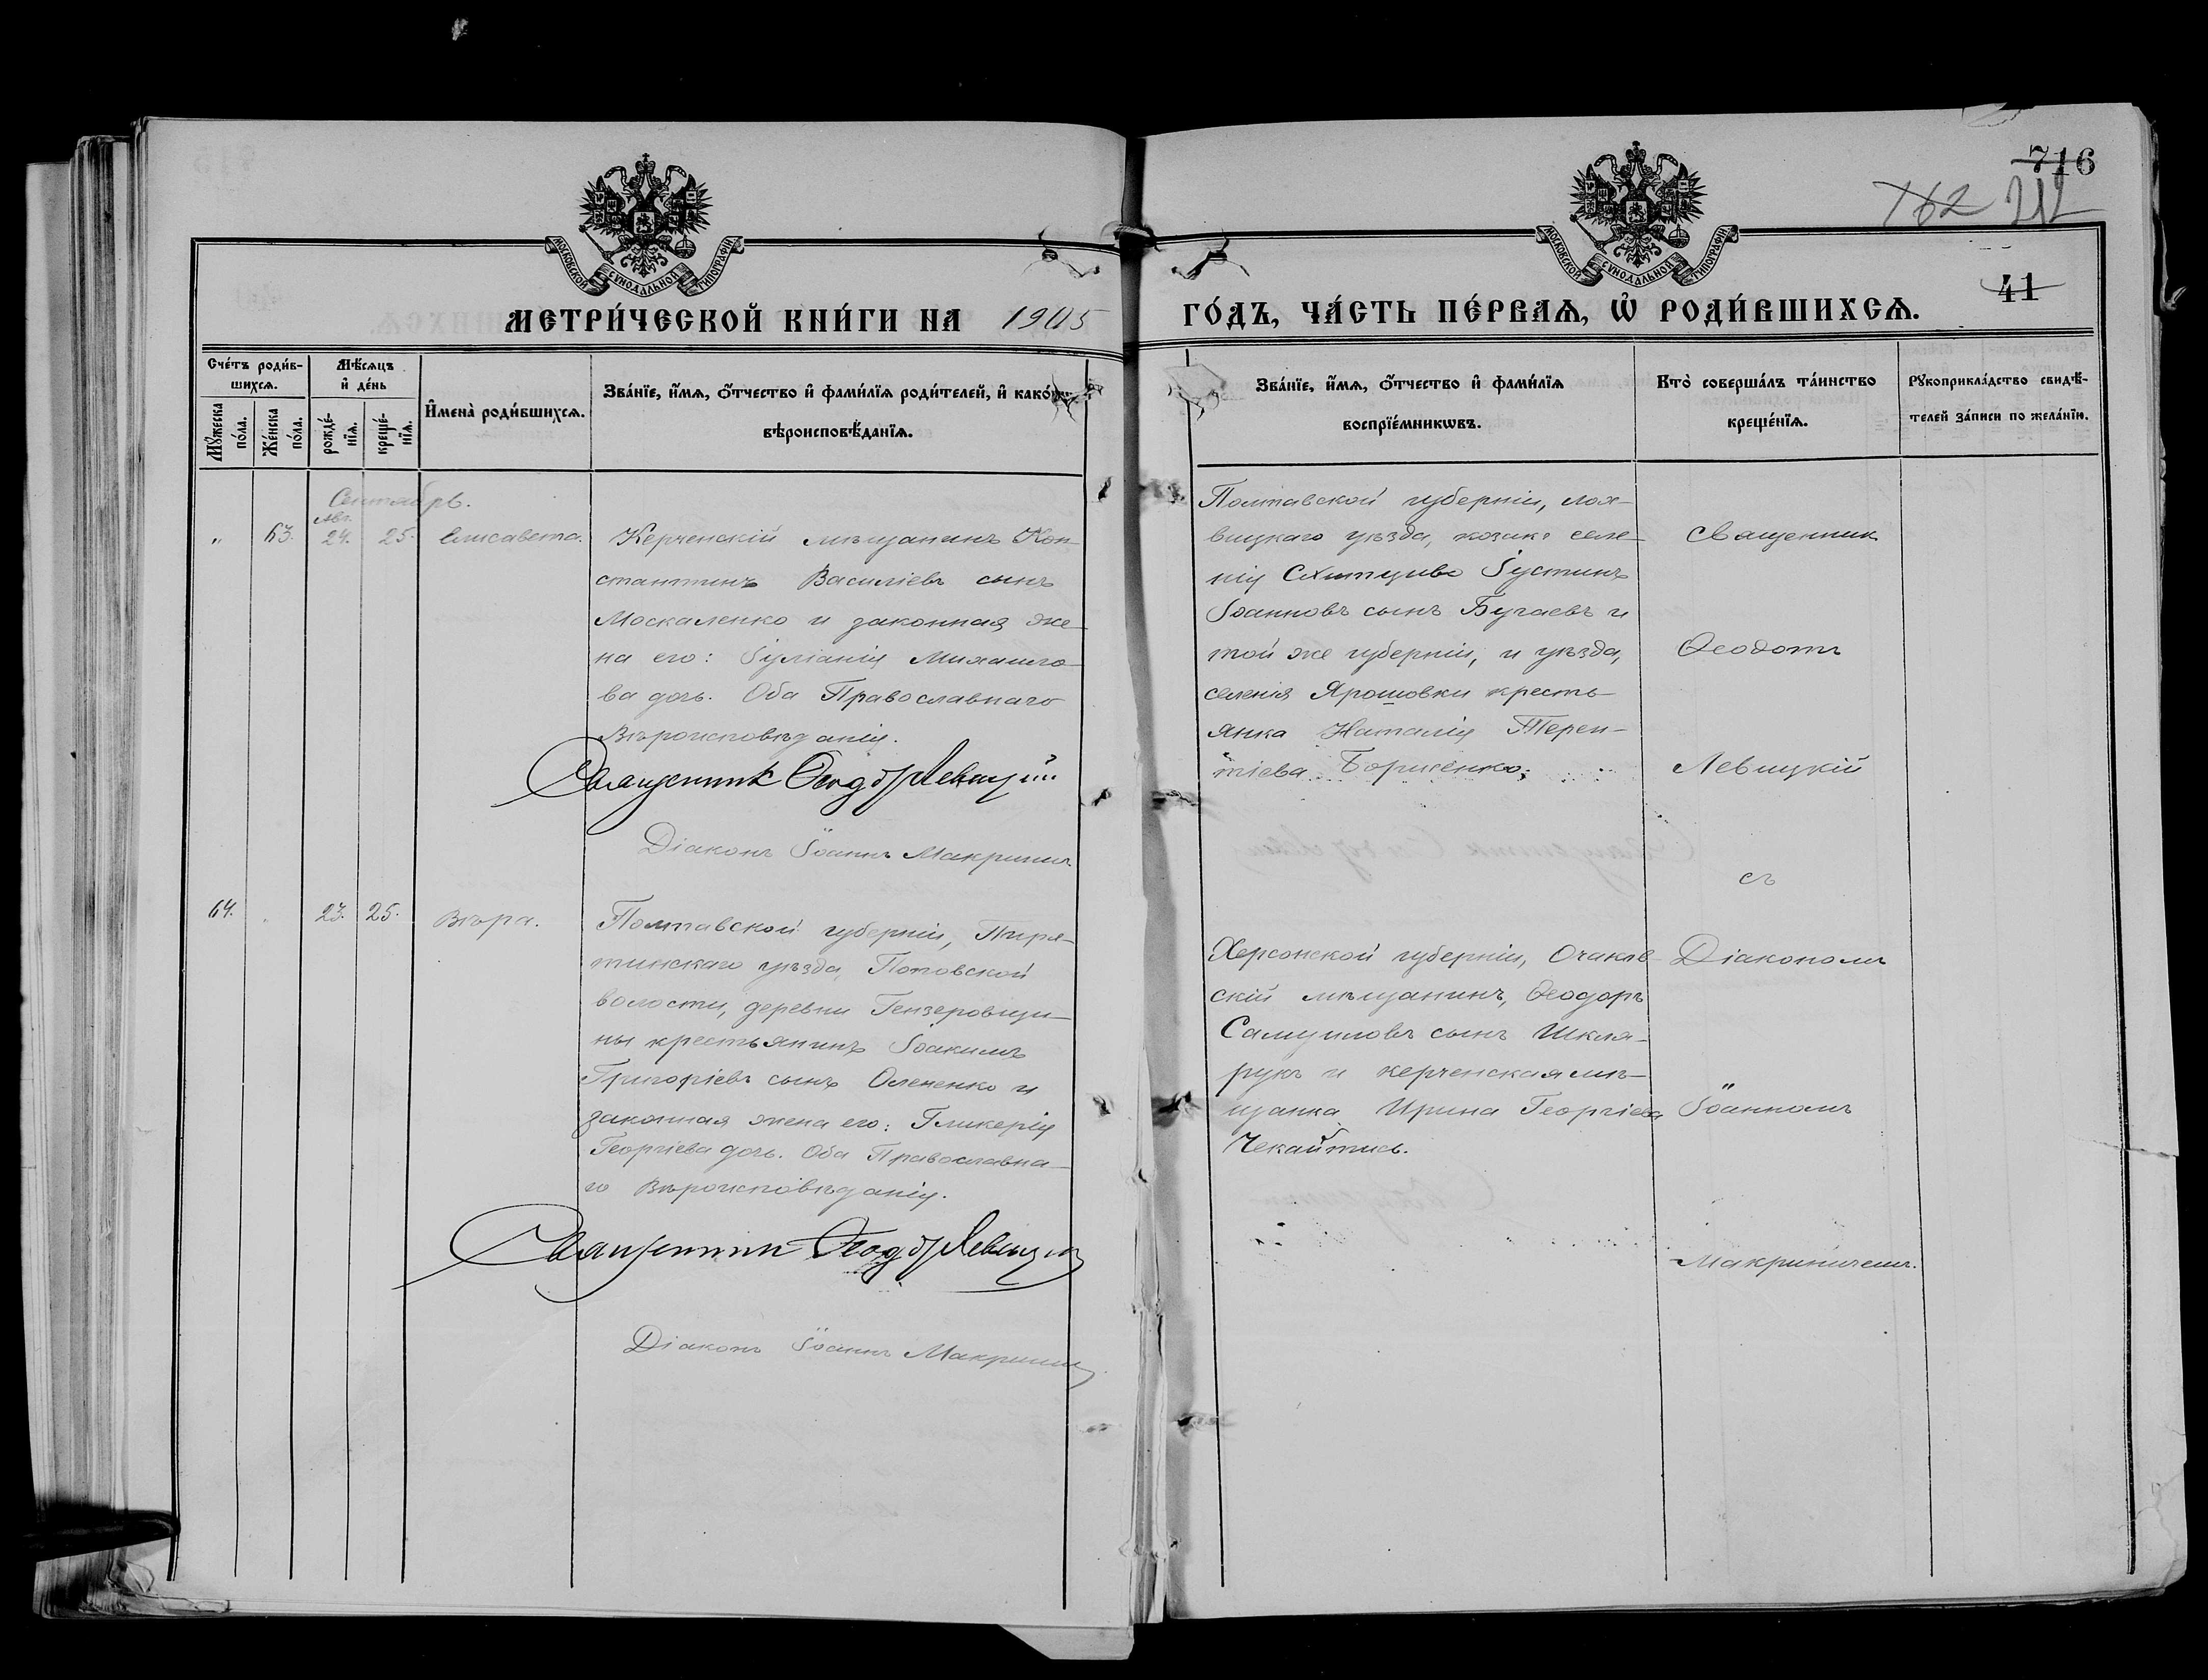 716
162 212
41
МОСКОВСКОЙ СѴНОДАЛЬНОЙ ТИПОГРАФІИ
МОСКОВСКОЙ СѴНОДАЛЬНОЙ ТИПОГРАФІИ
МЕТРИ́ЧЕСКОЙ КНИ́ГИ НА 1905 ГО́ДЪ, ЧА́СТЬ ПЕ́РВАѦ, Ѡ҆ РОДИ́ВШИХСѦ.
Сче́тъ роди́в-
шихсѧ.
Мꙋ́жеска по́ла.
Же́нска по́ла.
Мѣ́сѧцъ
и҆ де́нь
рожде́-
нїѧ.
креще́-
нїѧ.
И҆мена̀ роди́вшихсѧ.
Зва́нїе, и҆́мѧ, ѻ҆́тчество и҆ фами́лїѧ роди́телей, и҆ како́гѡ
вѣроисповѣ́данїѧ.
Зва́нїе, и҆́мѧ, ѻ҆́тчество и҆ фами́лїѧ
воспрїе́мникѡвъ.
Кто̀ соверша́лъ та́инство
креще́нїѧ.
Рꙋкоприкла́дство свидѣ́-
телей за́писи по жела́нїю.
Сентябрь.
Авг.
„ 63. 24. 25. Елисавета.
Керченскій мѣщанинъ Кон-
стантинъ Василіевъ сынъ
Москаленко и законная же-
на его: Іуліанія Михаило-
ва дочь. Оба Православнаго
Вѣроисповѣданія.
Священникъ Ѳеодотъ Левицкій
Діаконъ Іоаннъ Макринич
Полтавской губерніи, лох-
вицкаго уѣзда, козакъ селе-
нія Іустинъ
Іоанновъ сынъ Бугаевъ и
той же губерніи, и уѣзда,
селенія Ярошовки кресть-
янка Наталія Терен-
тіева Борисенко;
Священник
Ѳеодотъ
Левицкій
съ
Діакономъ
Іоанномъ
Макриничемъ.
64. 23. 25. Вѣра.
Полтавской губерніи, Пиря-
тинскаго уѣзда, Поповской
волости, деревни Гензеровщи-
ны крестьянинъ Іоакимъ
Григоріевъ сынъ Олененко и
законная жена его: Гликерія
Георгіева дочь. Оба Православна-
го Вѣроисповѣданія.
Священникъ Ѳеодотъ Левицкій
Діаконъ Іоаннъ Макринич
Херсонской губерніи, Очаков-
скій мѣщанинъ, Ѳеодоръ
Самуиловъ сынъ Шкля-
рукъ и керченская мѣ-
щанка Ирина Георгіева
Чекайтись.